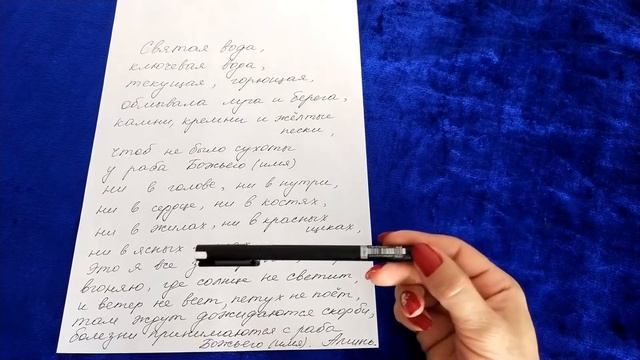 Святая вода,
ключевая вода,
текущая, горющая,
обмывала луга и берега,
камни, кремни и жёлтые
пески,
чтоб не было сухоты
у раба Божьего (имя)
ни в голове, ни в нутри,
ни в сердце, ни в костях,
ни в жилах, ни в красных
щиках,
ни в ясных
Это я все
вгоняю, где солнце не светит,
и ветер не веет, петух не поёт,
там ждут дожидаются скорби,
болезни принимаются с раба
Божьего (имя). Аминь.